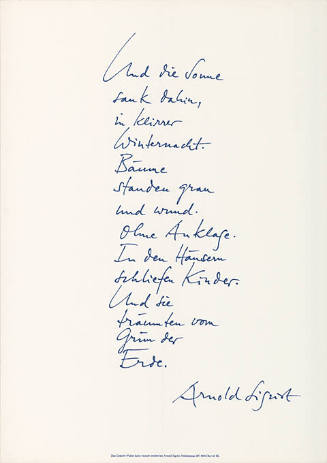 Und die Sonne
sank dahin,
in klirrer
Winternacht.
Bäume
standen grau
und wund.
Ohne Anklage.
In den Häusern
schliefen Kinder.
Und sie
träumten vom
Grün der
Erde.
Arnold Sigrist